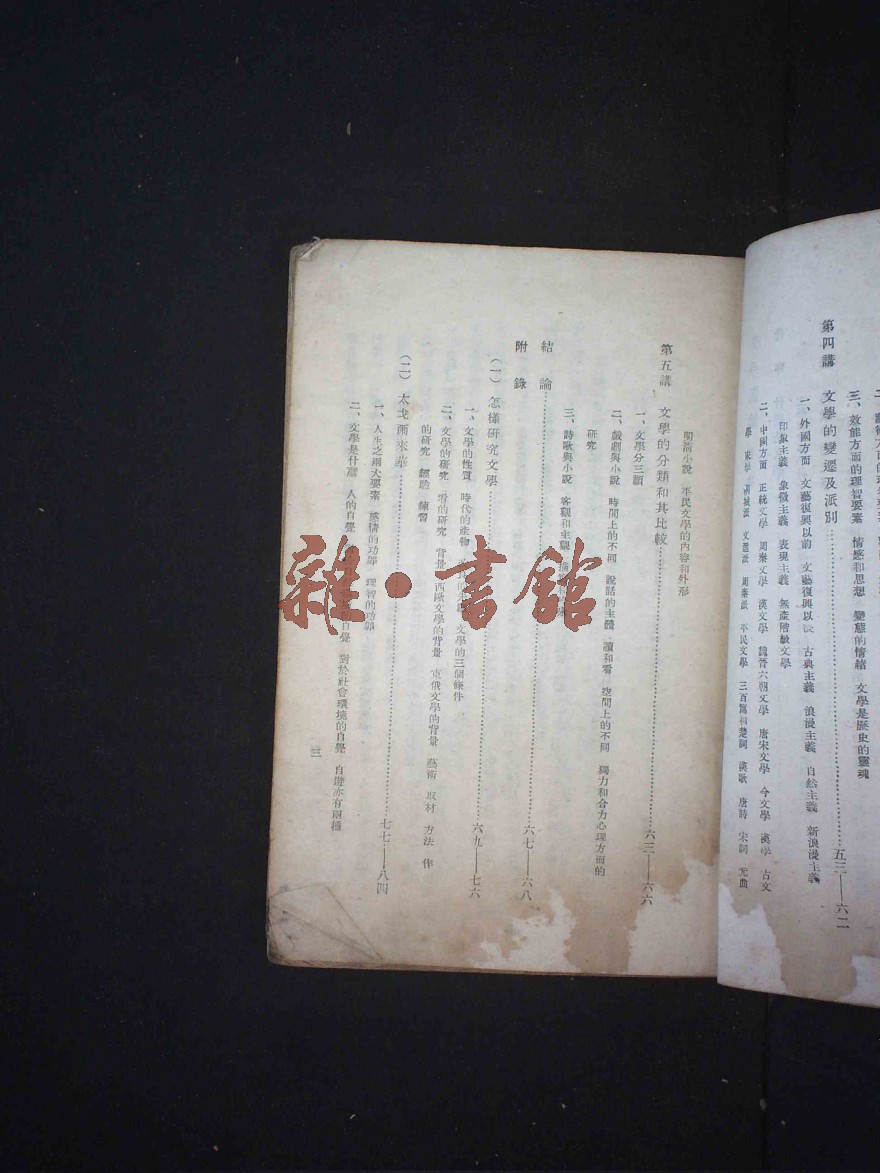 三、效能方面的理智要素　情感和思想　變態的情緒　文學是歷史的靈魂
第四講　文學的變遷及派別……五三——六二
一、外國方面　文藝復興以前　文藝復興以後　古典主義　浪漫主義　自然主義　新浪漫主義
印象主義　象徵主義　表現主義　無產階級文學
二、中國方面　正統文學　周秦文學　漢文學　魏晉六朝文學　唐宋文學　今文學　漢學　古文
學　桐城派　文選派　周秦派　平民文學　三百篇和楚詞　漢歌　唐詩　宋詞　元曲
明清小說　平民文學的內容和外形
第五講　文學的分類和其比較……六三——六六
一、文學分三類
二、戲劇與小說　時間上的不同　說話的主體　讀和看　空間上的不同　獨力和合力心理方面的
研究
三、詩歌與小說　客觀和主觀
結論……六七——六八
附錄
（一）怎樣研究文學……六九——七六
一、文學的性質　時代的產物　文學的三個條件
二、文學的研究　背景　西歐文學的背景　東俄文學的背景　藝術　取材　方法　作
的研究　經驗　練習
（二）太戈爾來華……七七——八四
一、人生之兩大要素　感情的功郵　理智的功郵
二、文學是什麼　人的自覺　自覺　對於社會環境的自覺　自遊亦有兩種
三
雜·書館